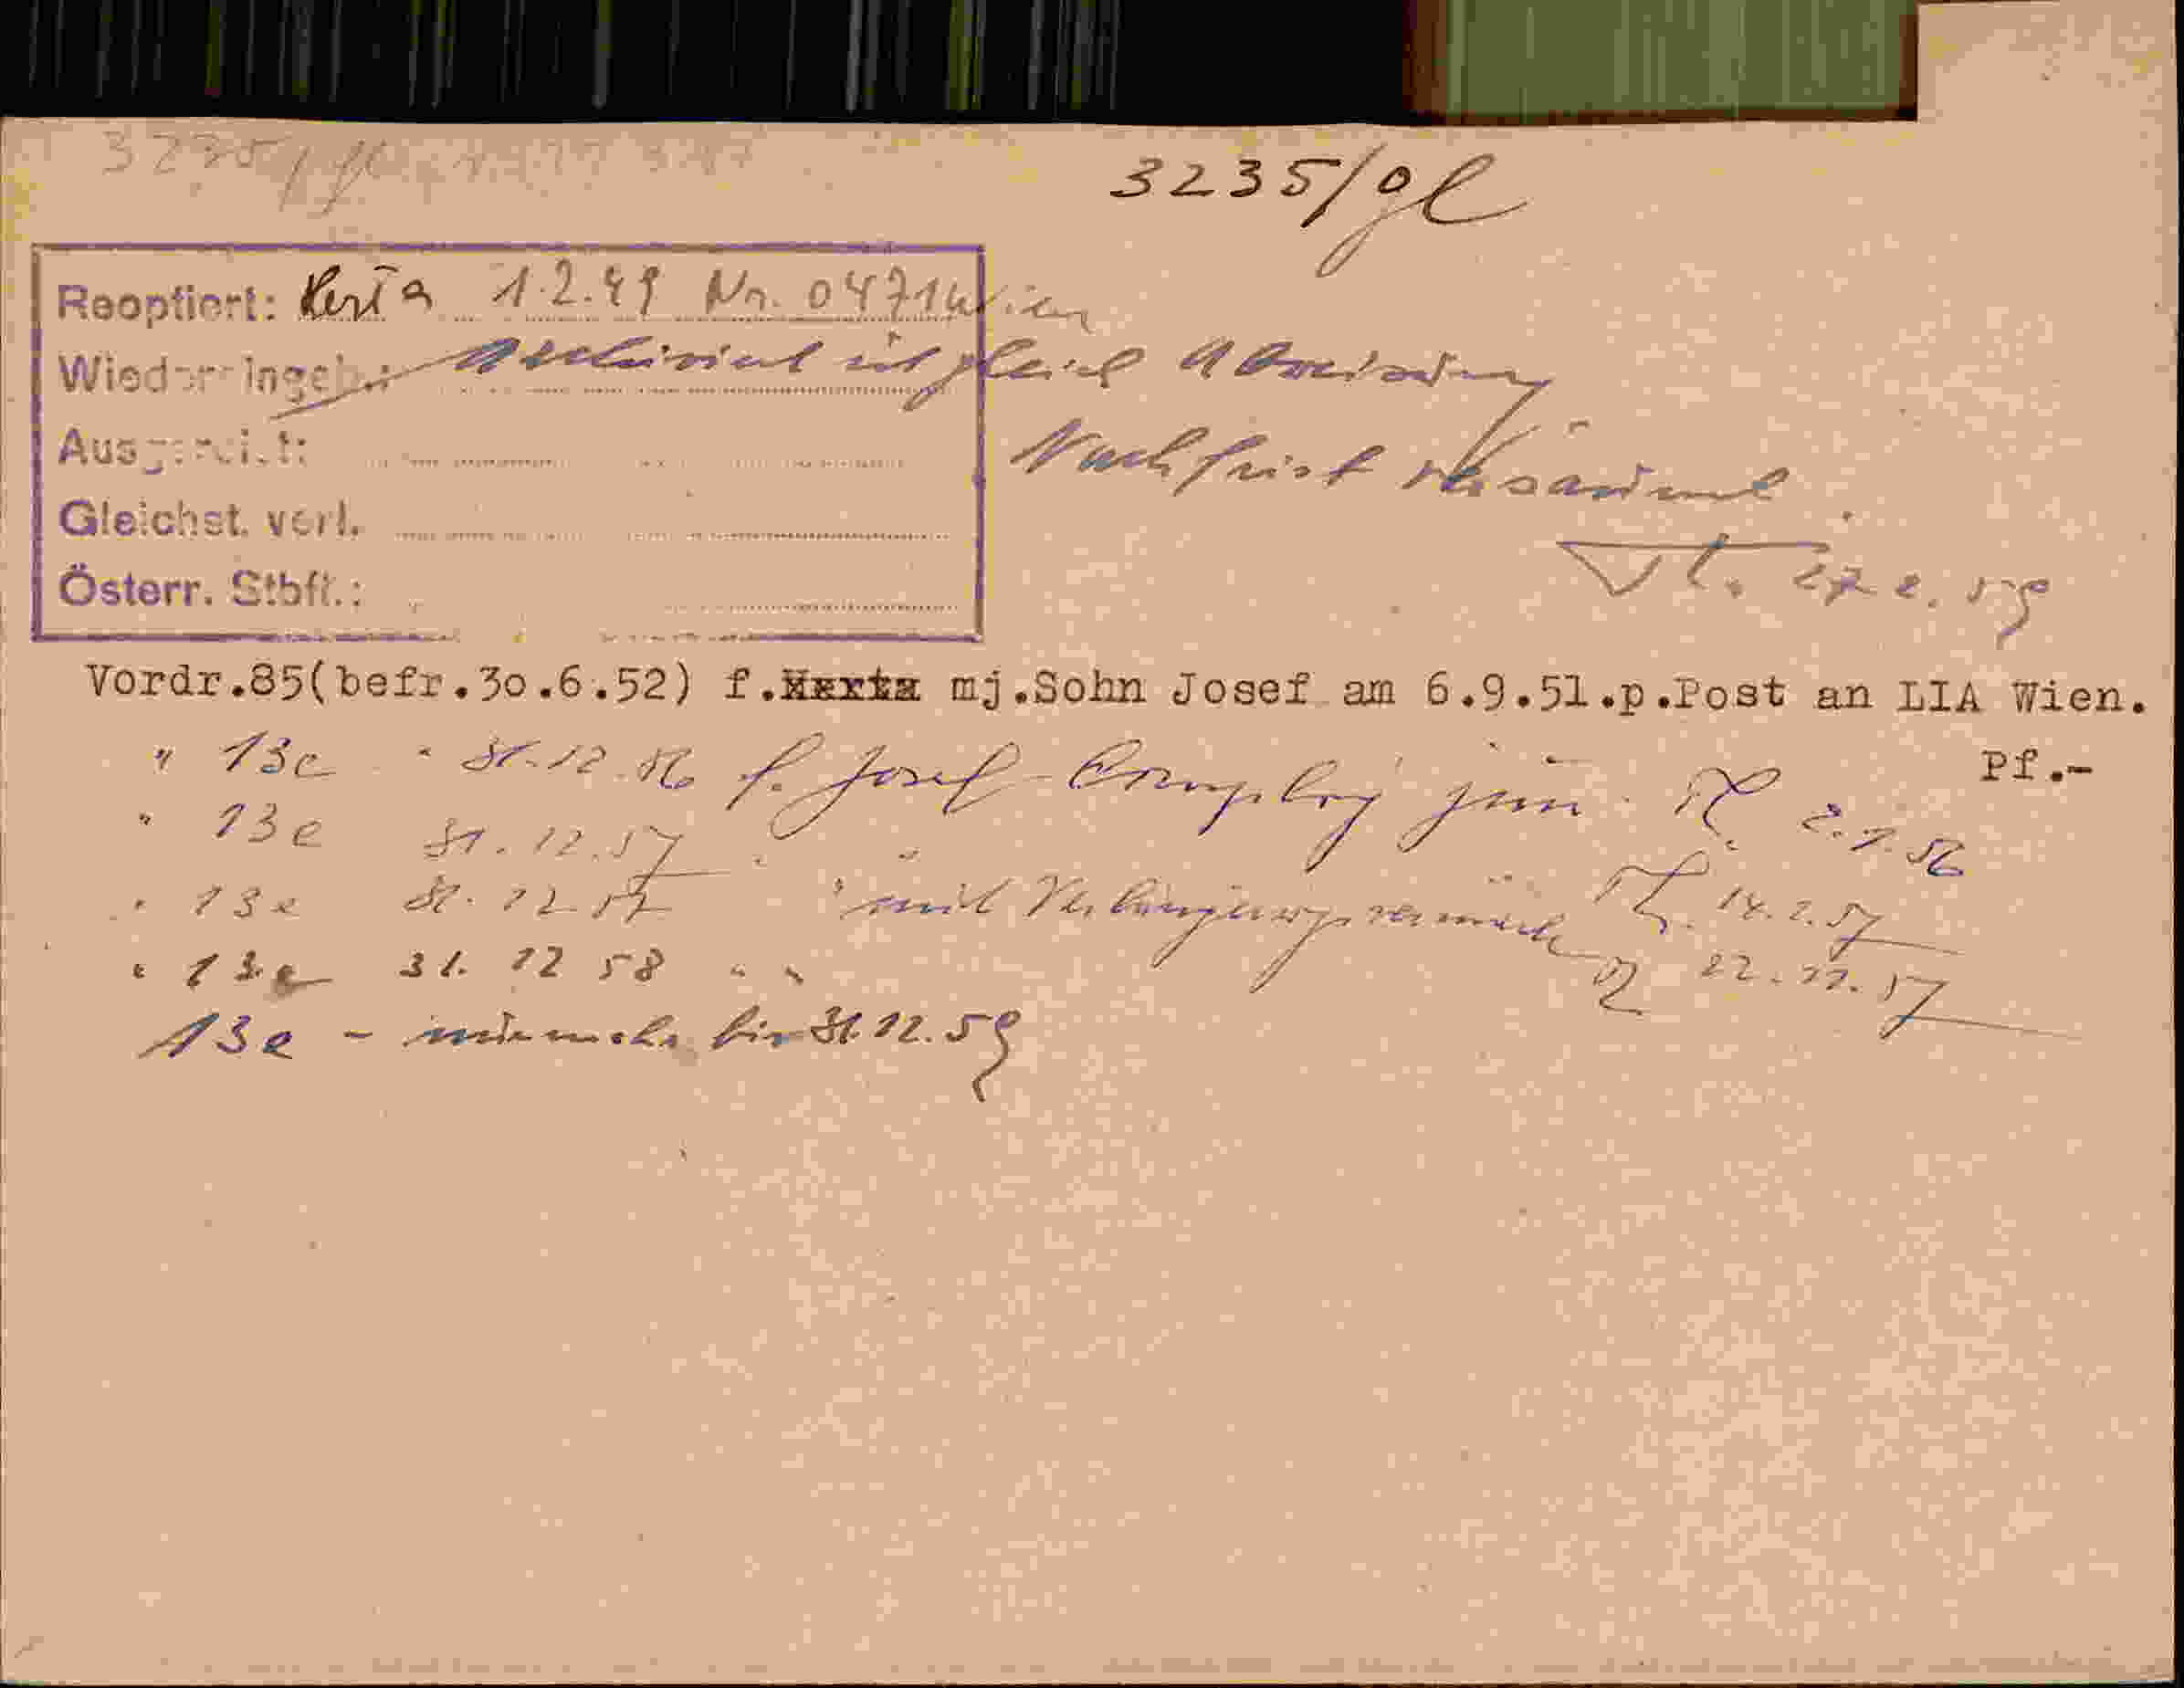 3235/gl
3235/gl
Reoptiert: Herta 1.2.49 Nr. 0471 Wien
Wiedereingeb.: Archiviert ist gleich Abweisung
Ausgereist: Nachfrist versäumt
Gleichst. verl.
Österr. Stbft.: 27.2.59
Vordr.85(befr.30.6.52) f. mj.Sohn Josef am 6.9.51.p.Post an LIA Wien.
Pf.-
" 13c " 31.12.56 f. Josef jun. 2.1.56
" 13e 31.12.57 " "
" 13e 31.12.57 " mit Verlängerungsvermerk 14.2.57
" 13e 31.12.58 " " 22.11.57
13e - nunmehr bis 31.12.59